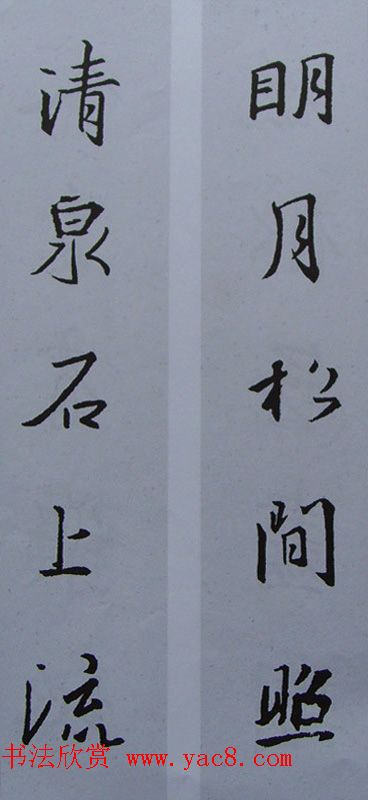 明月松間照
清泉石上流
书法欣赏 www.yac8.com